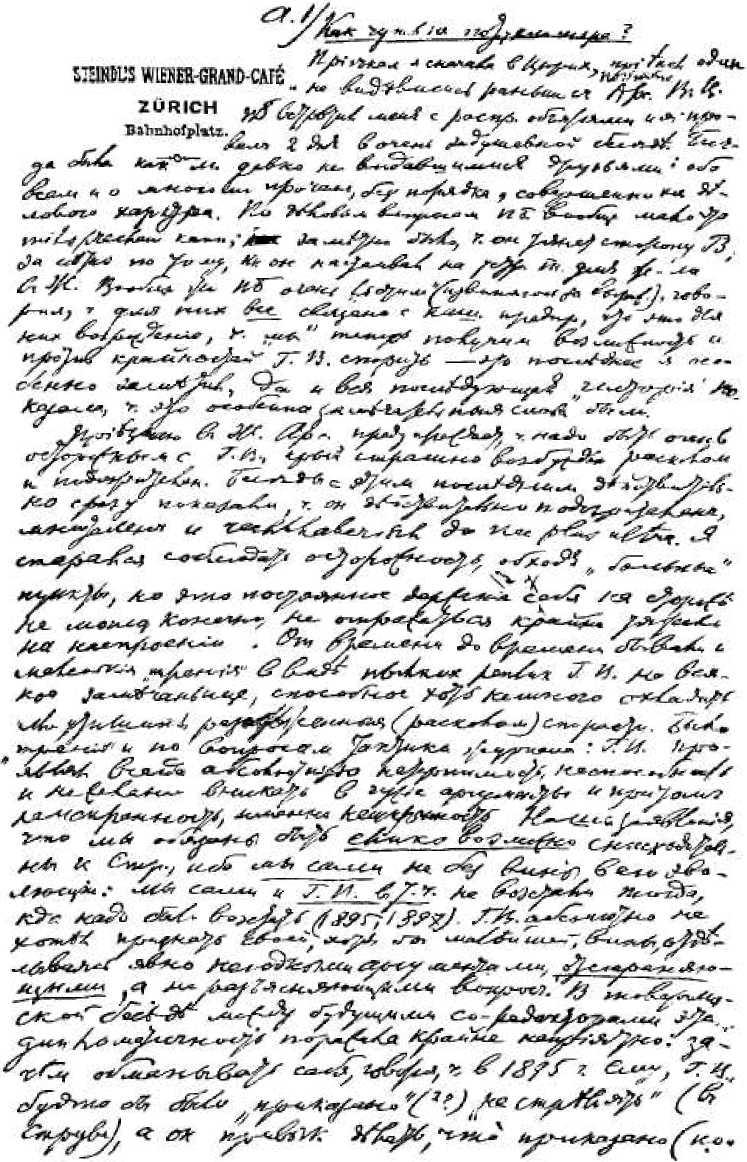 а. 1) Как чуть не потухла искра?
STEINDL'S WIENER-GRAND-CAFÉ
ZÜRICH
Bahnhofplatz.
Приехал я сначала в Цюрих, приехал один
и не видевшись раньше с Арс. В Ц.
ПБ встретил меня с распр. объятиями и я про-
вел 2 дня в очень задушевной беседѣ. Бесѣ-
да была как м. давно не видавшимися друзьями: обо
всем и о многом прочем, без порядка, совершенно не дѣ-
лового характера. По дѣловым вопросам ПБ вообще мало что
mitsprechen kann; замѣтно было, ч. он тянет сторону ГВ,
замѣтно по тому, как он настаивал на устр. тип. для ж-ла
в Ж. Вообще же ПБ очень льстил (извиняюсь за выраж.), гово-
рил, ч. для них все связано с наш. предпр., что это для
них возрождение, ч. „мы“ теперь получим возможность и
против крайностей Г. В. спорить — это последнее я осо-
бенно замѣтил, да и вся послѣдующая „гистория“ по-
казала, ч. это особенно замѣчательныя слова были.
Приѣзжаю в Ж. Арс. предупреждает, ч. надо быть очень
осторожным с Г. В., к-рый страшно возбужден расколом
и подозрителен. Бесѣды с этим послѣдним дѣйствитель-
но сразу показали, ч. он дѣйствительно подозрителен,
мнителен и rechthaberisch до nec plus ultra. Я
старался соблюдать осторожность, обходя „больные“
пункты, но это постоянное держание себя на сторожѣ
не могло конечно, не отражаться крайне тяжело
на настроении. От времени до времени бывали и
маленькия „трения“ в видѣ пылких реплик Г. В. на вся-
кое замѣчаньице, способное хоть немного охладить
или утишить разожженныя (расколом) страсти. Были
„трения“ и по вопросам тактики журнала: Г. В. про-
являл всегда абсолютную нетерпимость, неспособность
и нежелание вникать в чужие аргументы и притом
неискренность, именно неискренность. Наши заявления,
что мы обязаны быть елико возможно снисходитель-
ны к Стр., ибо мы сами не без вины в его эво-
люции: мы сами и Г. В. в т. ч. не возстали тогда,
когда надо было возстать (1895, 1897). Г. В. абсолютно не
хотѣл признать своей, хотя бы малѣйшей, вины, отдѣ-
лываясь явно негодными аргументами, отстраняю-
щими, а не разъясняющими вопрос. В товарище-
ской бесѣдѣ между будущими со-редакторами эта...
дипломатичность поражала крайне неприятно: за-
чѣм обманывать себя, говоря, ч. в 1895 г. ему, Г. В.,
будто бы было „приказано“ (??) „не стрѣлять“ (в
Струве), а он привык дѣлать, что приказано (по-